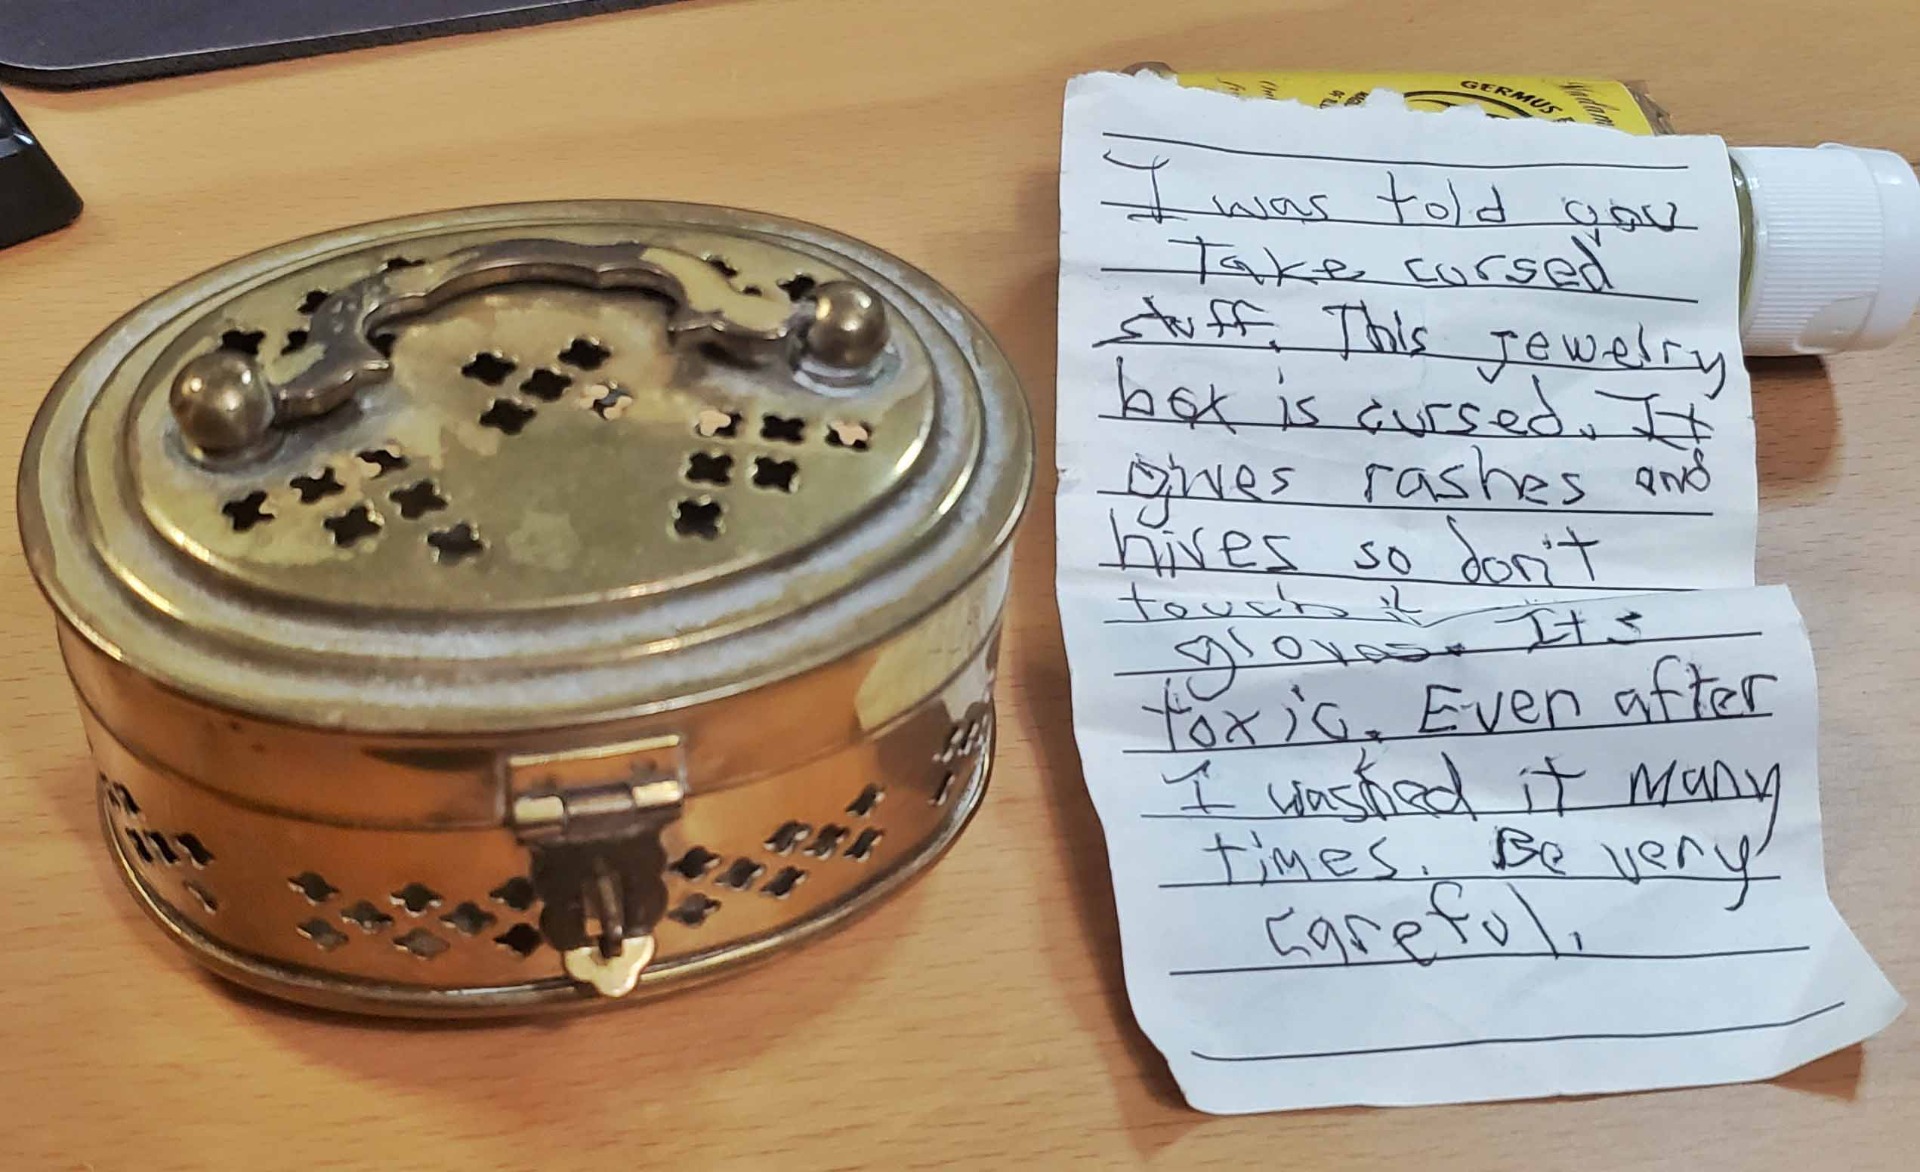 GERMUS
Madam
I was told you
Take cursed
stuff. This jewelry
box is cursed. It
gives rashes and
hives so don't
touch it
gloves. Its
toxic. Even after
I washed it many
times. Be very
careful.